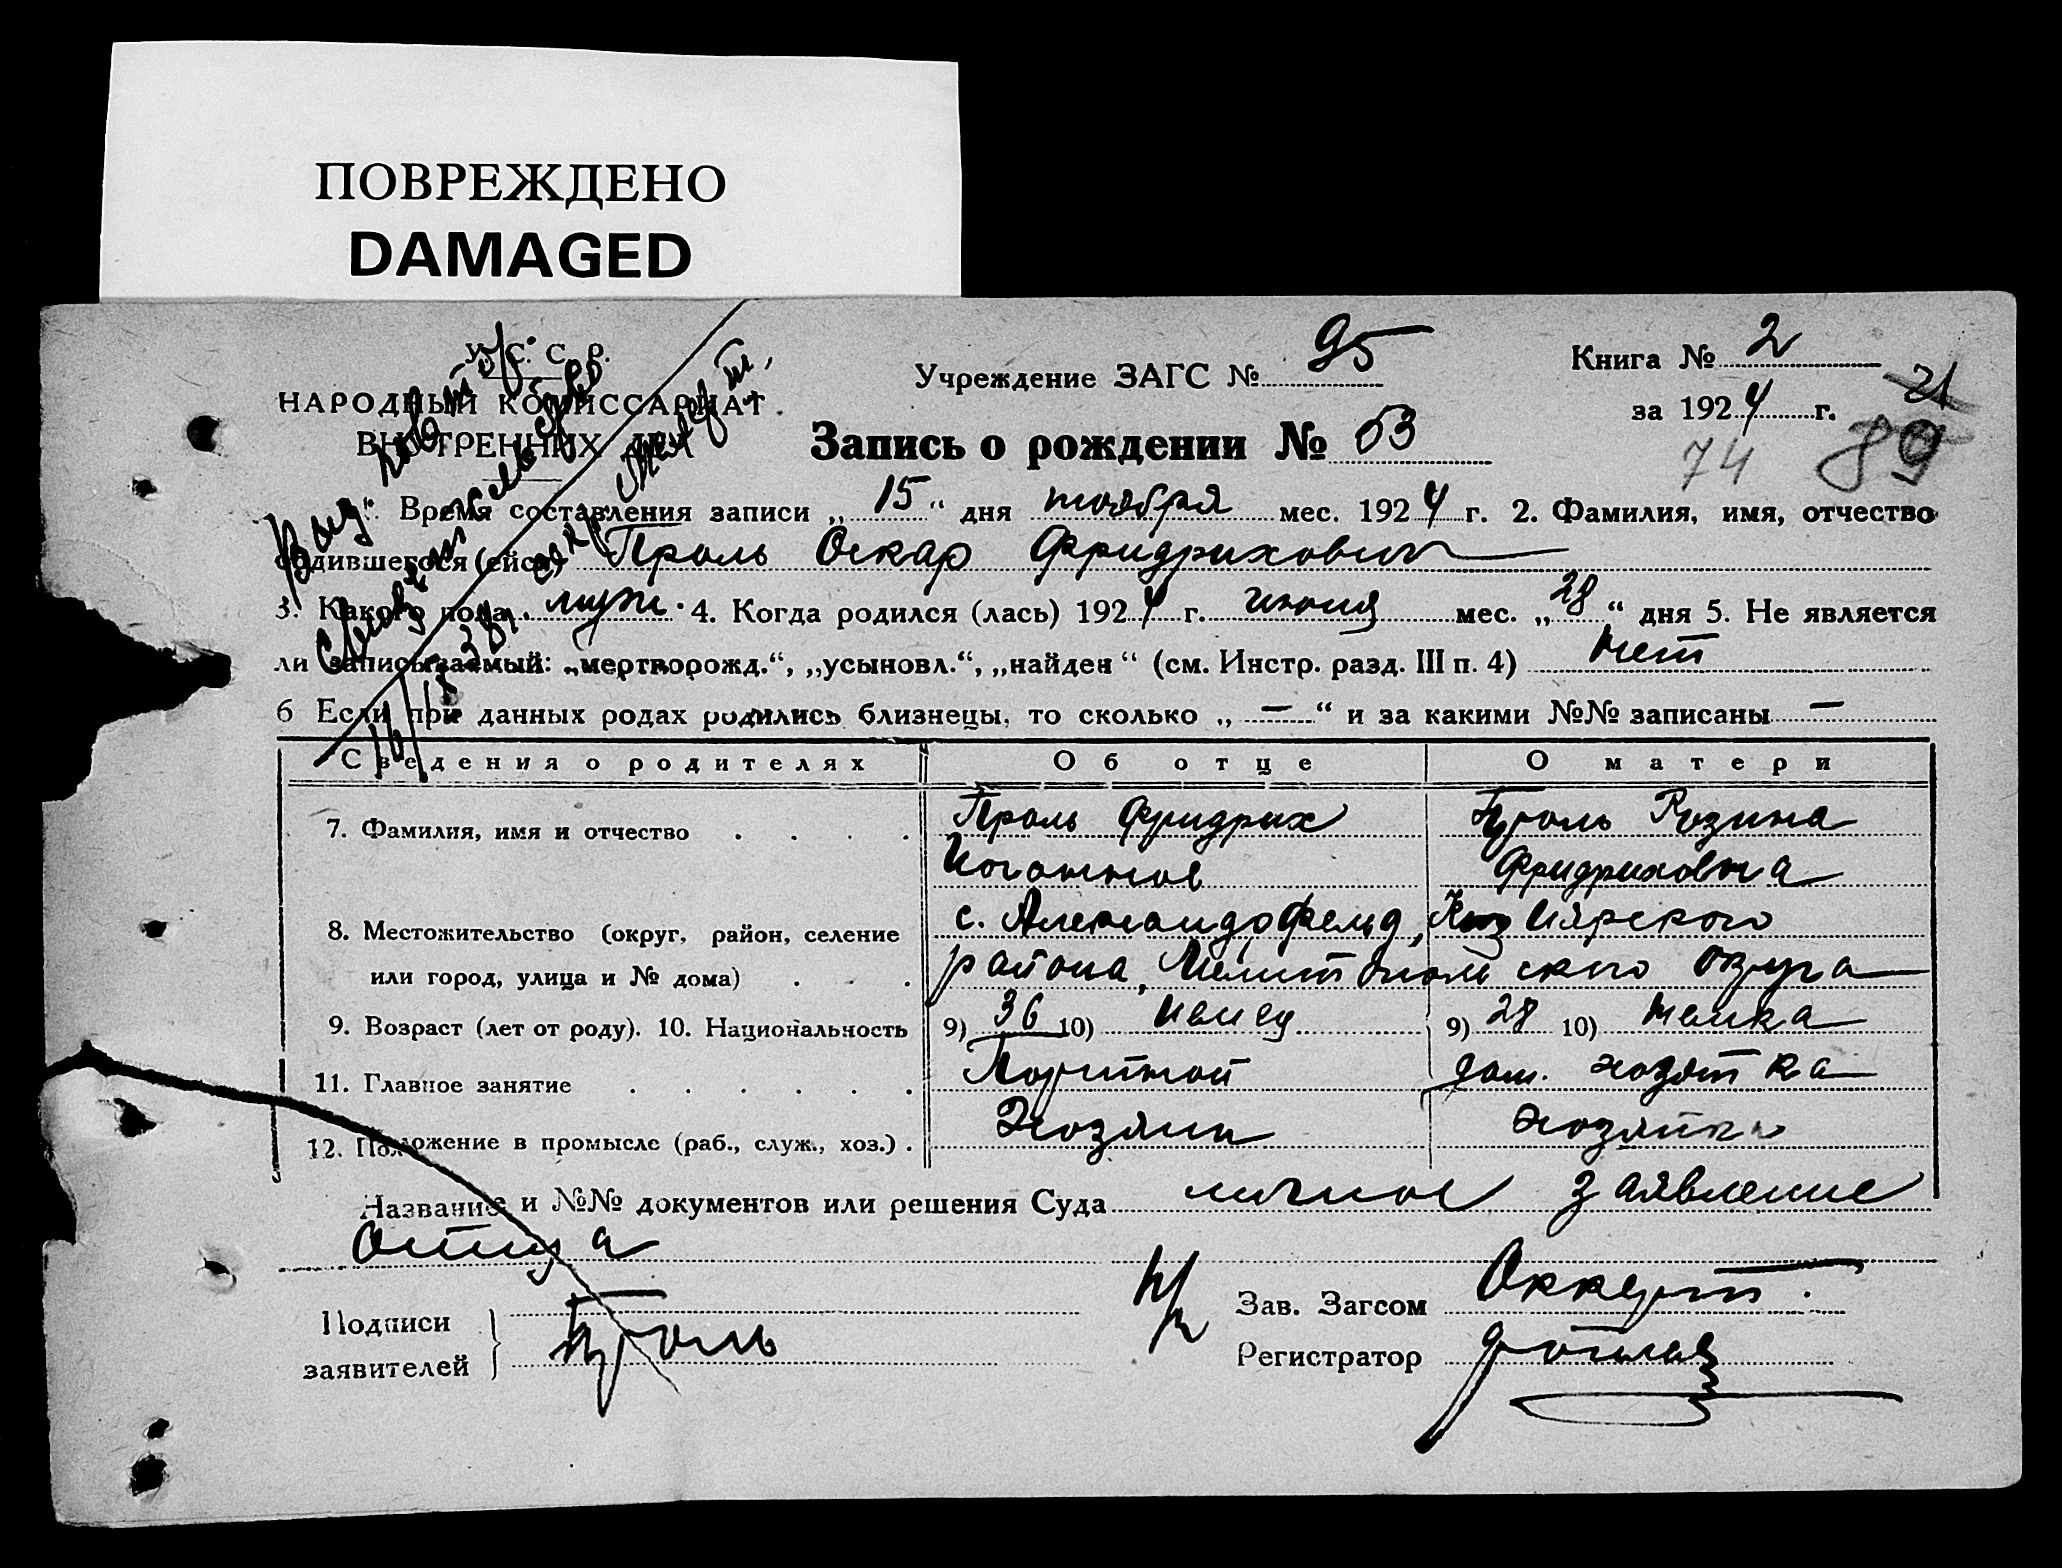 ПОВРЕЖДЕНО
DAMAGED
У. С. С. Р.
НАРОДНЫЙ КОМИССАРИАТ
ВНУТРЕННИХ ДЕЛ
Учреждение ЗАГС № 95
Книга № 2
за 1924 г.
21
Запись о рождении № 53
74 89
Время составления записи „15“ дня ноября мес. 1924 г. 2. Фамилия, имя, отчество
родившегося (ейся) Проль Оскар Фридрихович
3. Какого пола муж. 4. Когда родился (лась) 1924 г. июня мес. „28“ дня 5. Не является
ли записываемый: „мертворожд.“, „усыновл.“, „найден“ (см. Инстр. разд. III п. 4) нет
6 Если при данных родах родились близнецы, то сколько „—“ и за какими №№ записаны —
Сведения о родителях Об отце О матери
7. Фамилия, имя и отчество Проль Фридрих Проль Розина
Иоганнов Фридриховна
8. Местожительство (округ, район, селение с. Александрфельд, Киз Иярского
или город, улица и № дома) района, Мелитопольского округа
9. Возраст (лет от роду). 10. Национальность 9) 36 10) Немец 9) 28 10) Немка
11. Главное занятие Портной дом. хозяйка
12. Положение в промысле (раб., служ., хоз.) Хозяин хозяйка
Название и №№ документов или решения Суда личное заявление
Отца
Подписи заявителей Проль
Зав. Загсом Оккерт.
Регистратор